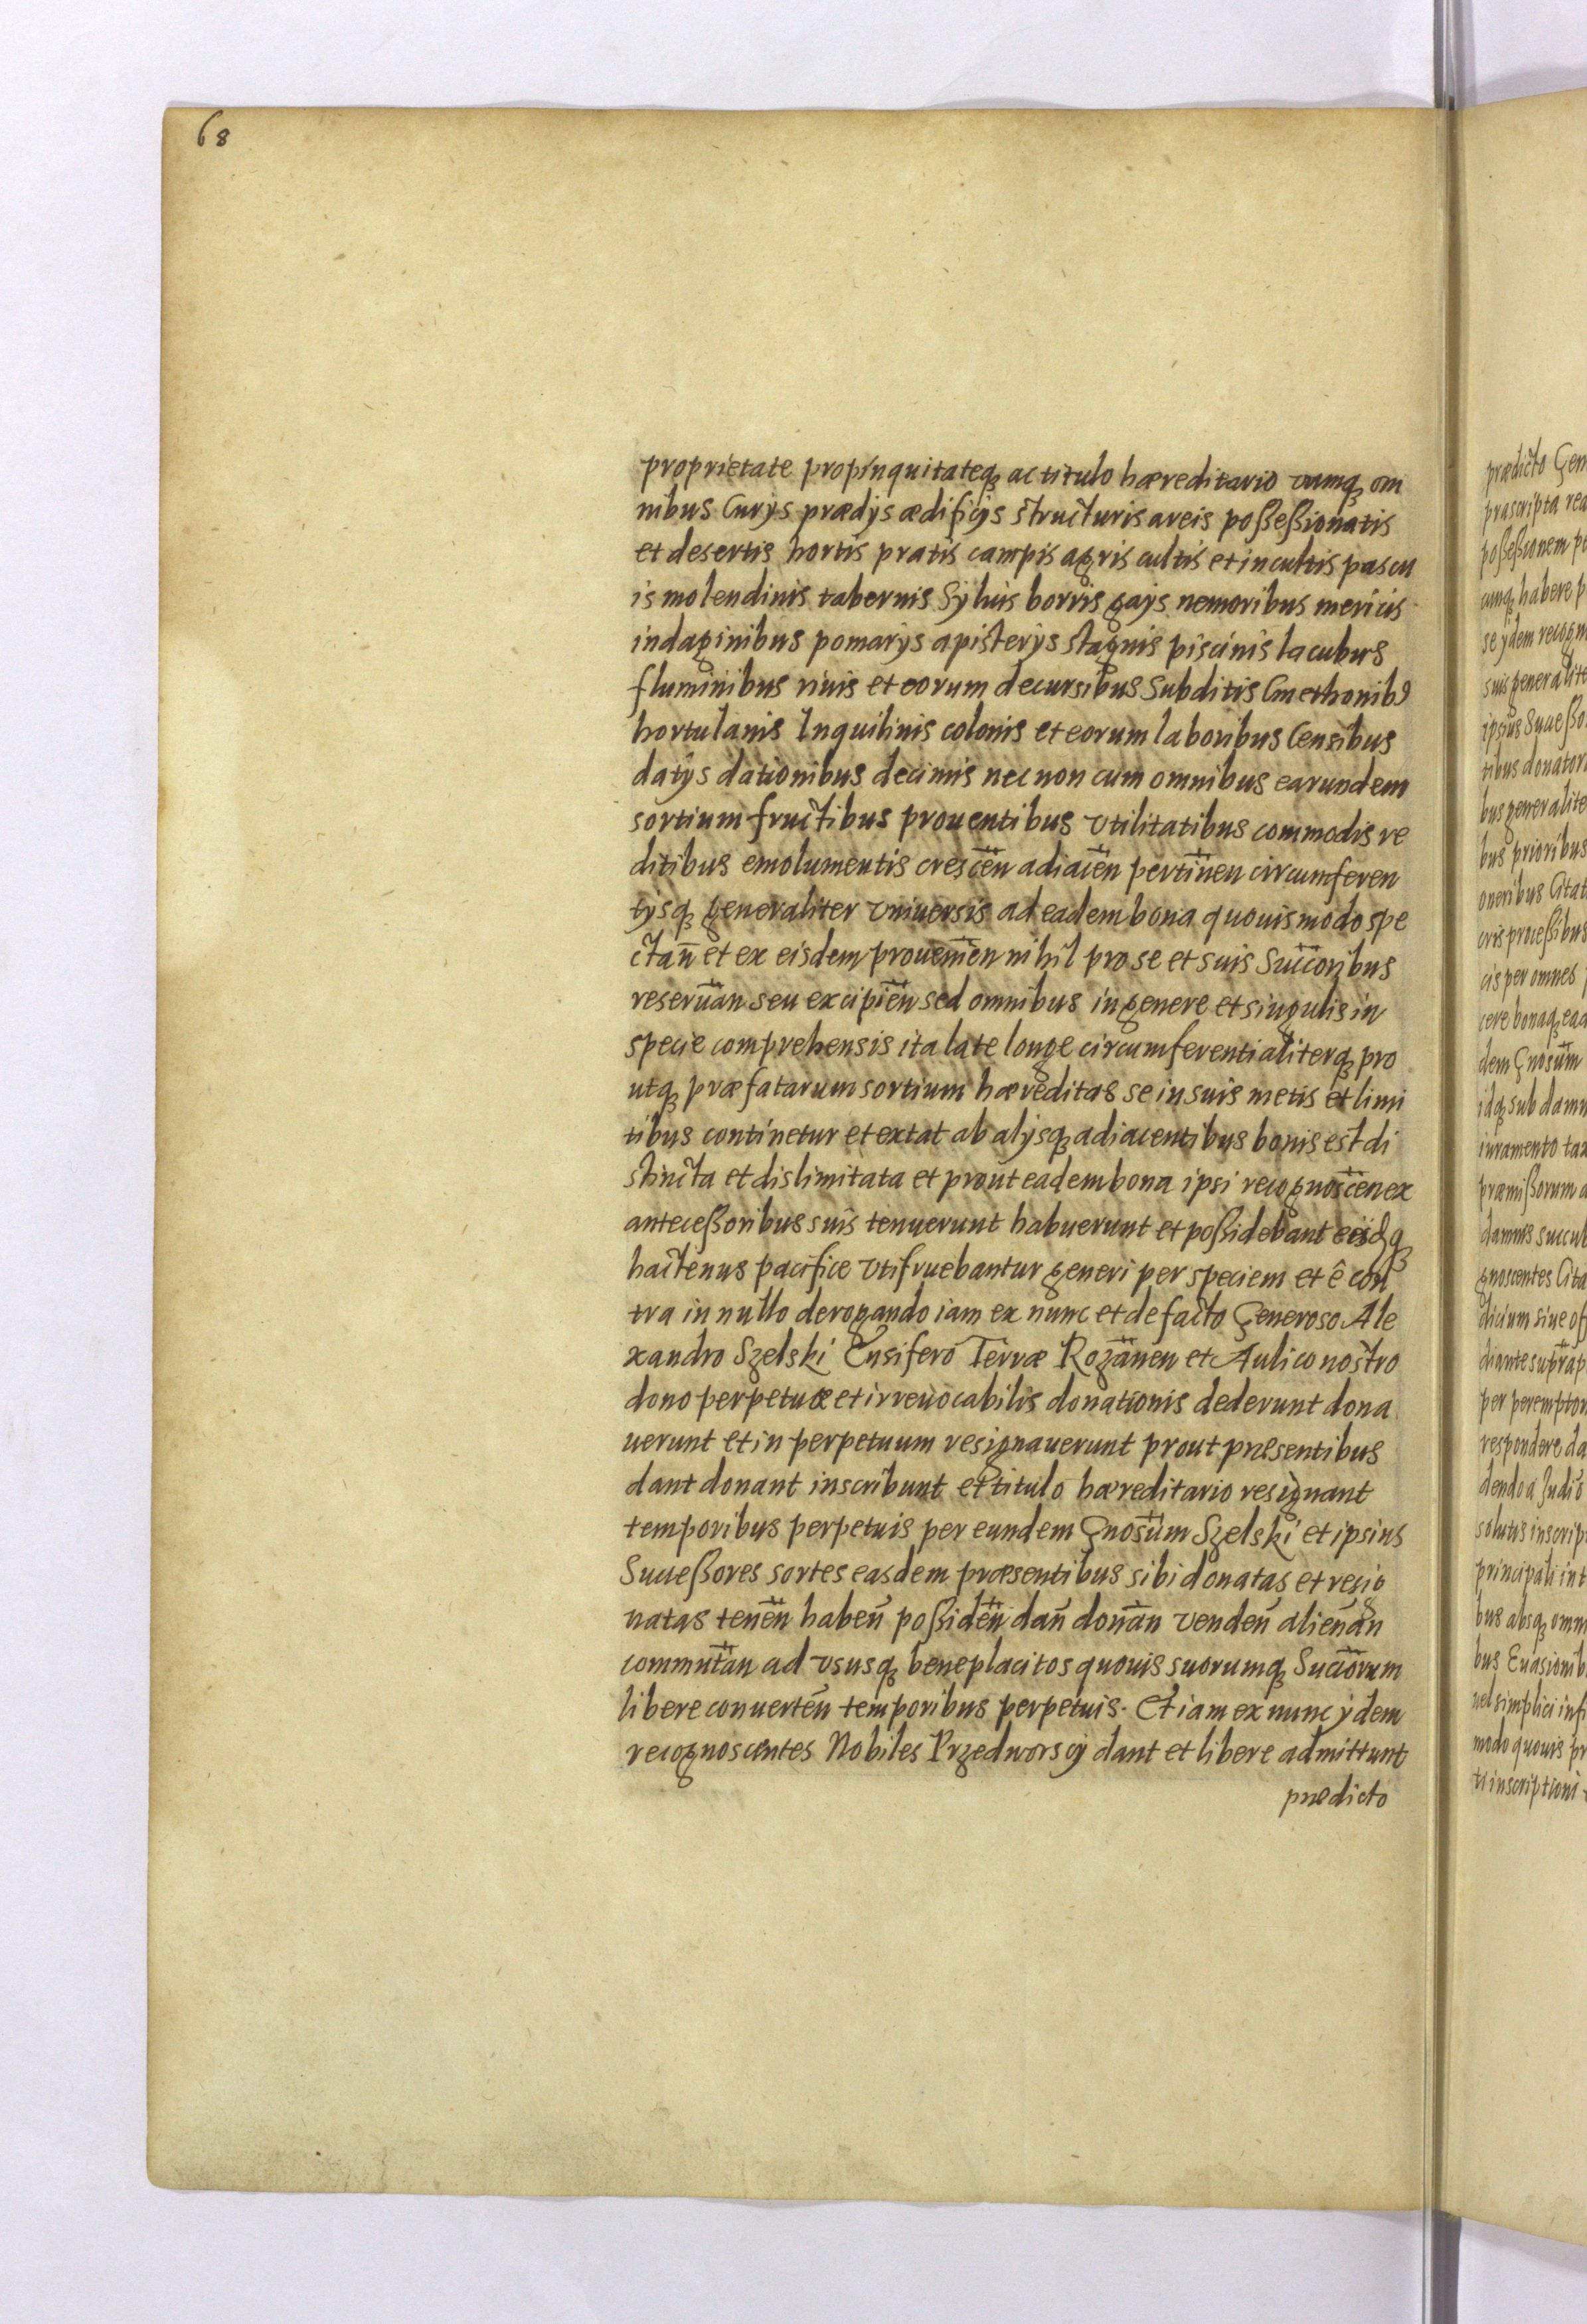 68
proprietate propinquitateq; ac titulo hæreditario cumq; om
nibus Curÿs prædÿs ædificÿs structuris areis poßeßionatis
et desertis hortis pratis campis agris cultis et incultis pascu
is molendinis tabernis Syluis borris gays nemoribus mericis
indaginibus pomarÿs apisterÿs stagnis piscinis lacubus
fluminibus riuis et eorum decursibus Subditis Cmethonibꝰ
hortulanis Inquilinis colonis et eorum laboribus Censibus
datÿs dationibus decimis nec non cum omnibus earundem
sortium fructibus prouentibus vtilitatibus commodis re
ditibus emolumentis crescen̄ adiacen̄ pertinen̄ circumferen
tÿsq; generaliter vniuersis ad eadem bona quouismodo spe
ctan̄ et ex eisdem prouenien̄ nihil pro se et suis Succoribus
reseruan̄ seu excipien̄ sed omnibus in genere et singulis in
specie comprehensis ita late longe circumferentialiterq; pro
utq; præfatarum sortium hæreditas se in suis metis et limi
tibus continetur et extat ab alÿsq; adiacentibus bonis est di
stincta et dislimitata et prout eadem bona ipsi recognoscen̄ ex
anteceßoribus suis tenuerunt habuerunt et poßidebant
hactenus pacifice vtifruebantur generi per speciem et è con
tra in nullo derogando iam ex nunc et de facto Generoso Ale
xandro Szelski Ensifero Terræ Rozanen̄ et Aulico nostro
dono perpetuæ et irreuocabilis donationis dederunt dona
uerunt et in perpetuum resignauerunt prout præsentibus
dant donant inscribunt et titulo hæreditario resignant
temporibus perpetuis per eundem Gnosum Szelski et ipsius
Succeßores sortes easdem præsentibus sibi donatas et resig
natas tenen̄ haben̄ poßiden̄ dan̄ donan̄ venden̄ alienan̄
commutan̄ ad vsusq; beneplacitos quouis suorumq; Succorum
libere conuerten̄ temporibus perpetuis. Et iam ex nunc ÿdem
recognoscentes Nobiles Przedworscÿ dant et libere admittunt
prædicto
prædicto Gen
præscripta rea
poßeßionem p
cumq; habere p
se ÿdem recogn
suis generalite
ipsius Succeßo
tibus donator
bus generalite
bus prioribus
oneribus Citat
cris proceßibus
cis per omnes
cere bonaq; ead
dem Gnosum
idq; sub damn
iuramento tax
præmißorum
damnis succub
gnoscentes Cita
dicium siue of
diante suprap
per peremptor
respondere da
dendo a Judic
solutis inscrip
principali int
bus absq; omn
bus Euasionib
uel simplici infi
modo quouis pr
ti inscriptioni